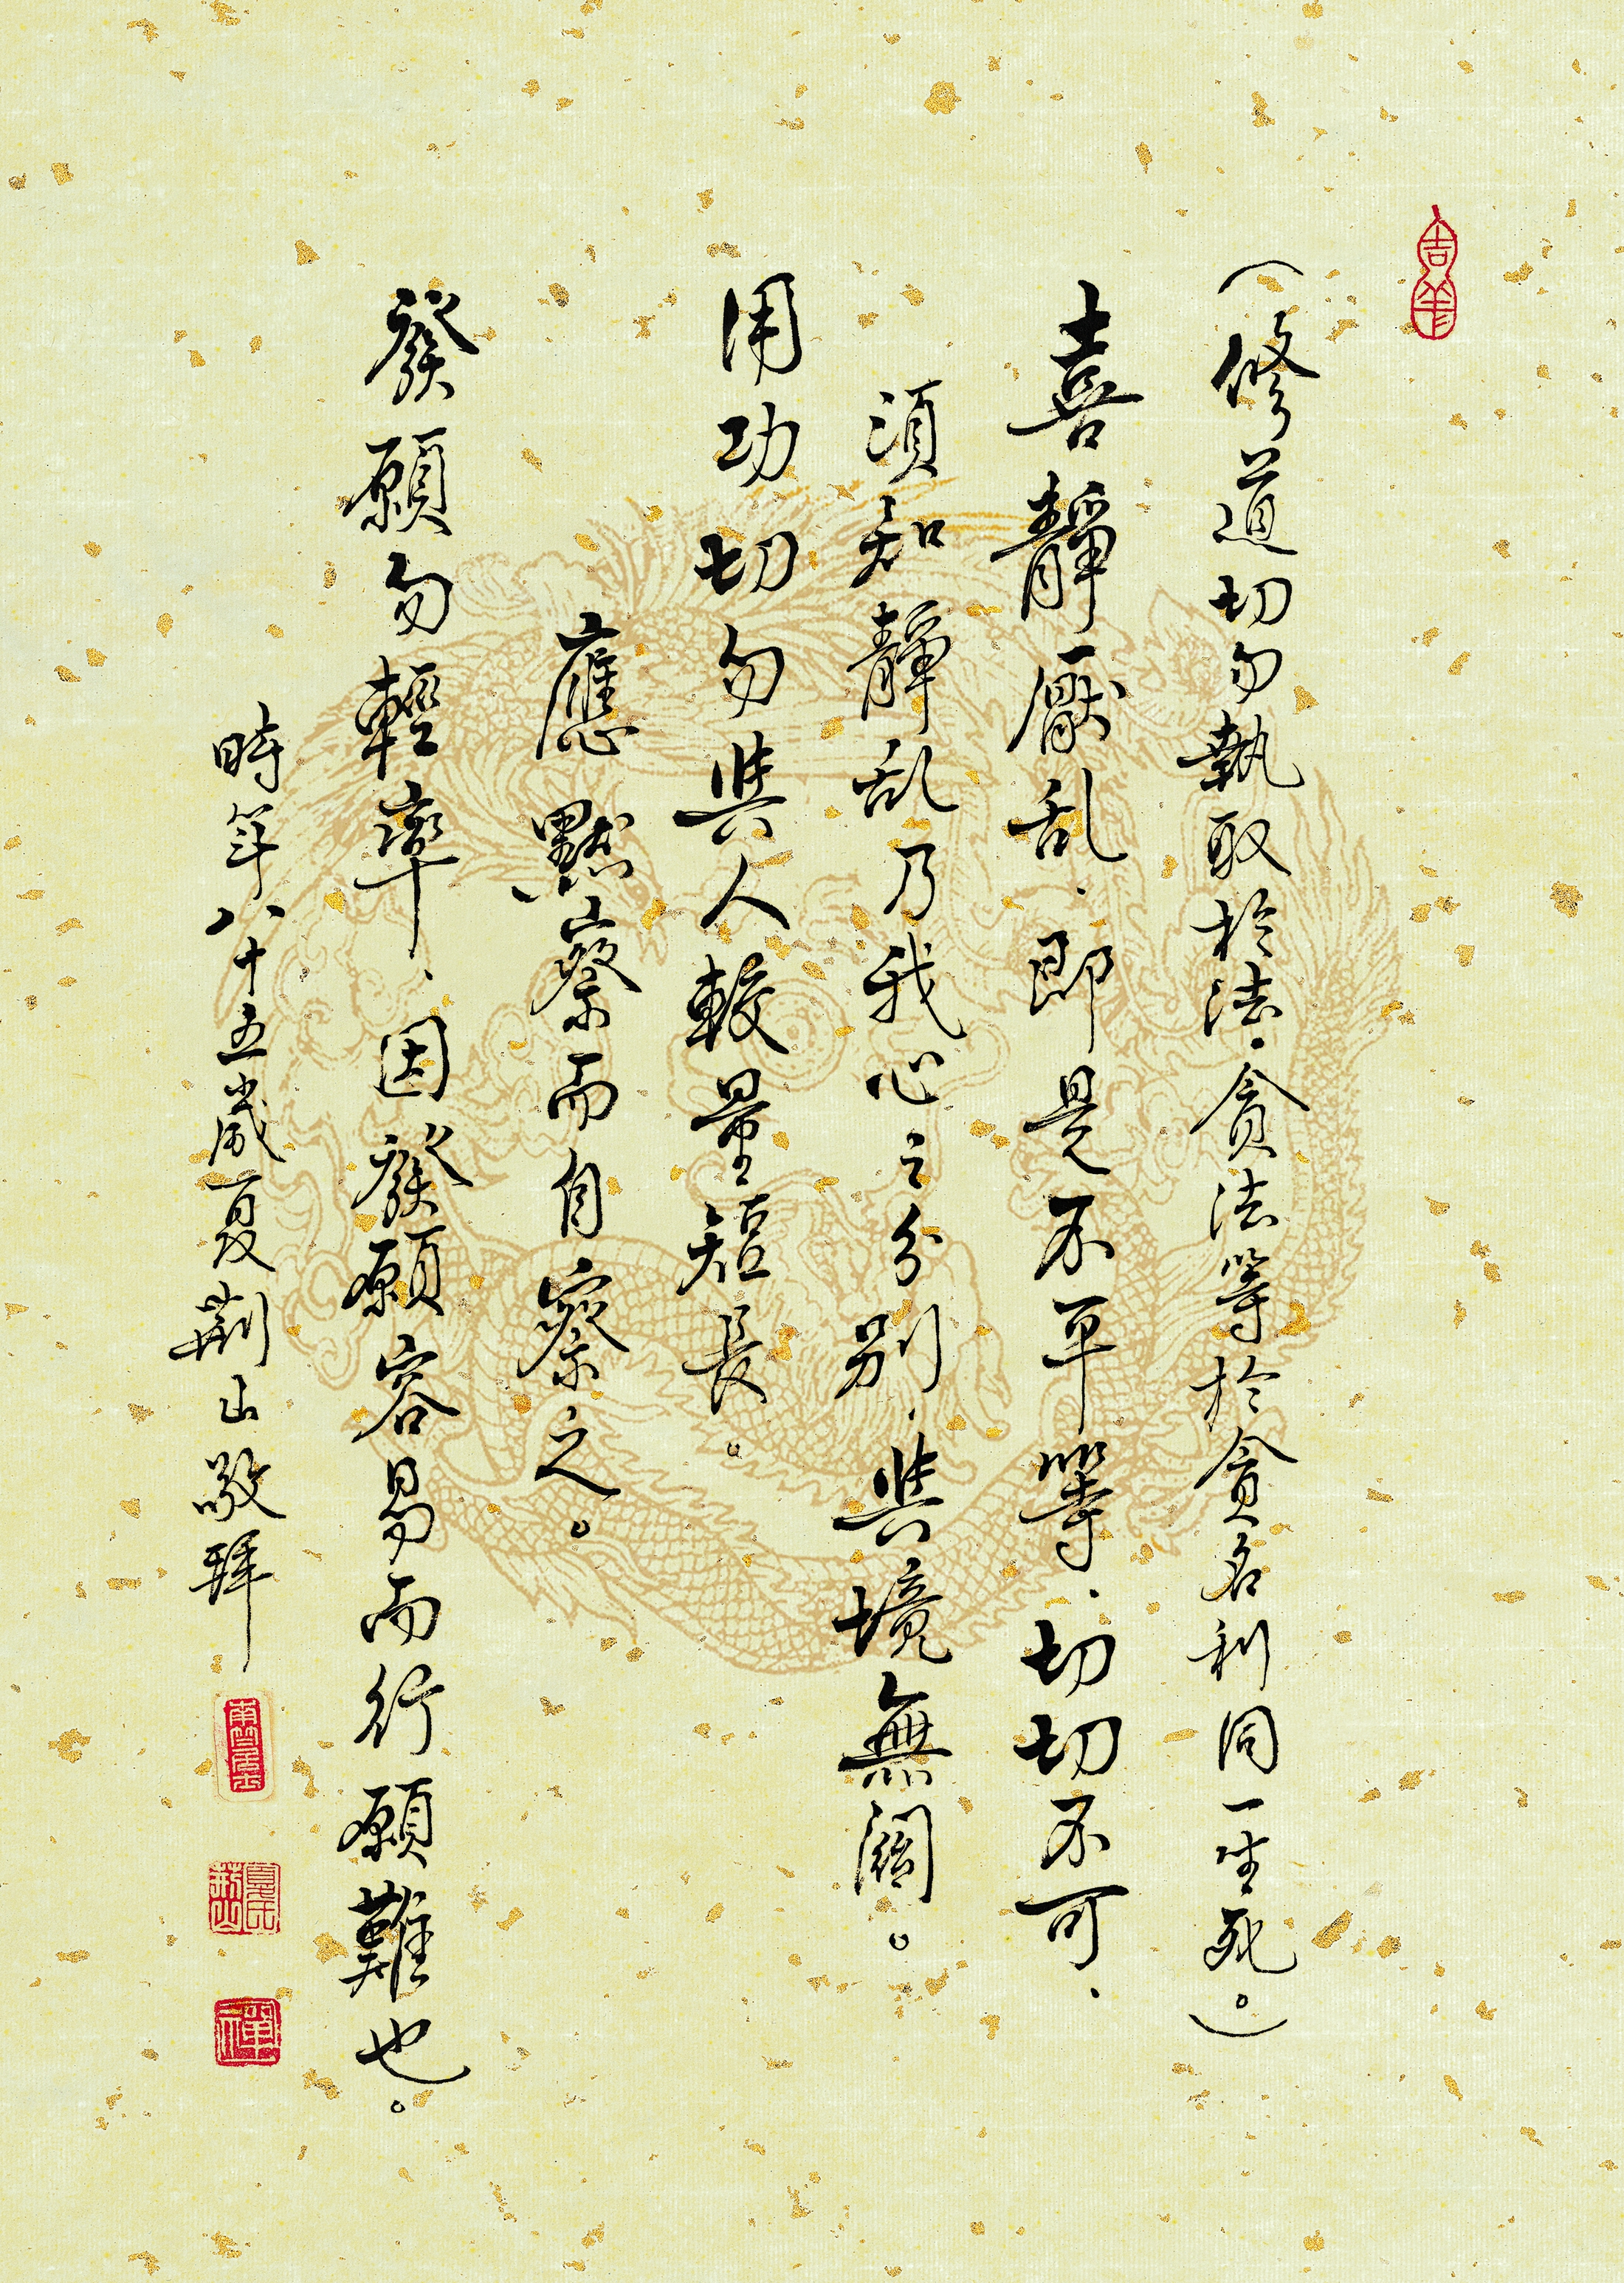 吉羊
（修道切勿執取於法．貪法等於貪名利同一生死。）
喜靜厭乱．即是不平等．切切不可．
須知靜乱乃我心之分別．與境無關。
用功切勿與人較量短長。
應默察而自察之。
發願勿輕率、因發願容易而行願難也。
時年八十五歲夏荆山敬拜
夏氏荆山